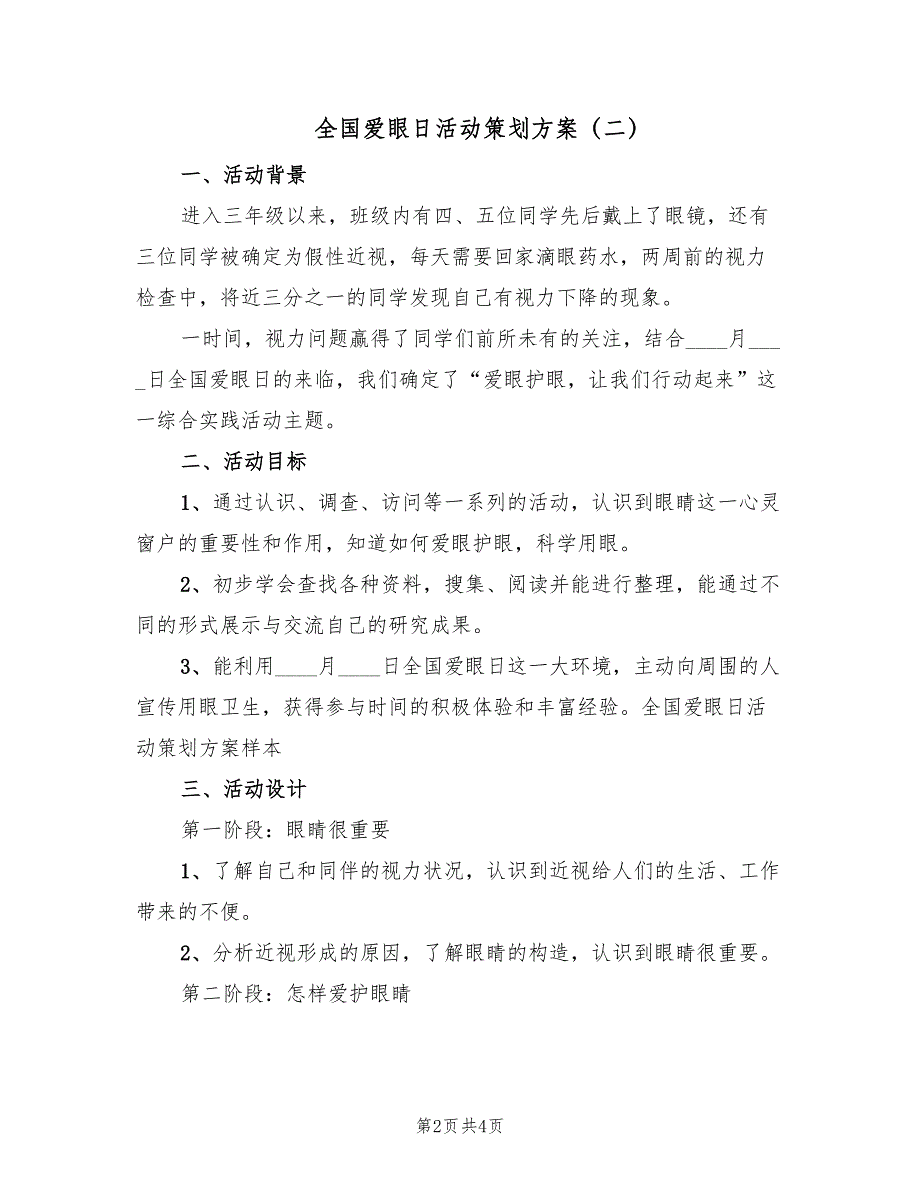 全国爱眼日活动策划方案（二）
一、活动背景
进入三年级以来，班级内有四、五位同学先后戴上了眼镜，还有
三位同学被确定为假性近视，每天需要回家滴眼药水，两周前的视力
检查中，将近三分之一的同学发现自己有视力下降的现象。
一时间，视力问题赢得了同学们前所未有的关注，结合____月___
_日全国爱眼日的来临，我们确定了“爱眼护眼，让我们行动起来”这
一综合实践活动主题。
二、活动目标
1、通过认识、调查、访问等一系列的活动，认识到眼睛这一心灵
窗户的重要性和作用，知道如何爱眼护眼，科学用眼。
2、初步学会查找各种资料，搜集、阅读并能进行整理，能通过不
同的形式展示与交流自己的研究成果。
3、能利用____月____日全国爱眼日这一大环境，主动向周围的人
宣传用眼卫生，获得参与时间的积极体验和丰富经验。全国爱眼日活
动策划方案样本
三、活动设计
第一阶段：眼睛很重要
1、了解自己和同伴的视力状况，认识到近视给人们的生活、工作
带来的不便。
2、分析近视形成的原因，了解眼睛的构造，认识到眼睛很重要。
第二阶段：怎样爱护眼睛
第2页 共4页